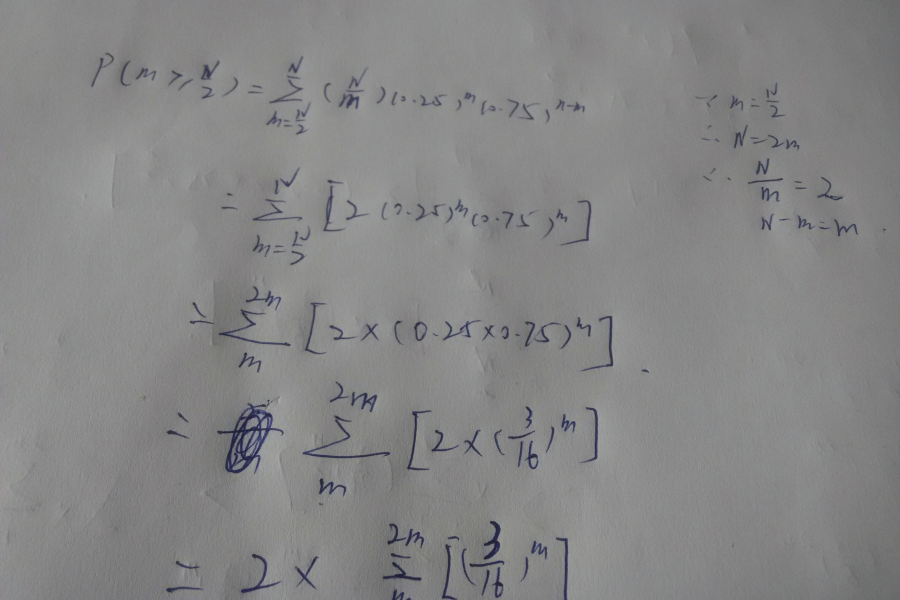 P(m ≥ N/2) = ∑_{m=N/2}^{N} (N/m) (0.25)^m (0.75)^{n-m}
∵ m = N/2
∴ N = 2m
∴ N/m = 2
N - m = m
= ∑_{m=N/2}^{N} [2 (0.25)^m (0.75)^m]
= ∑_{m}^{2m} [2 × (0.25×0.75)^m]
= ∑_{m}^{2m} [2 × (3/16)^m]
= 2 × ∑_{m}^{2m} [(3/16)^m]